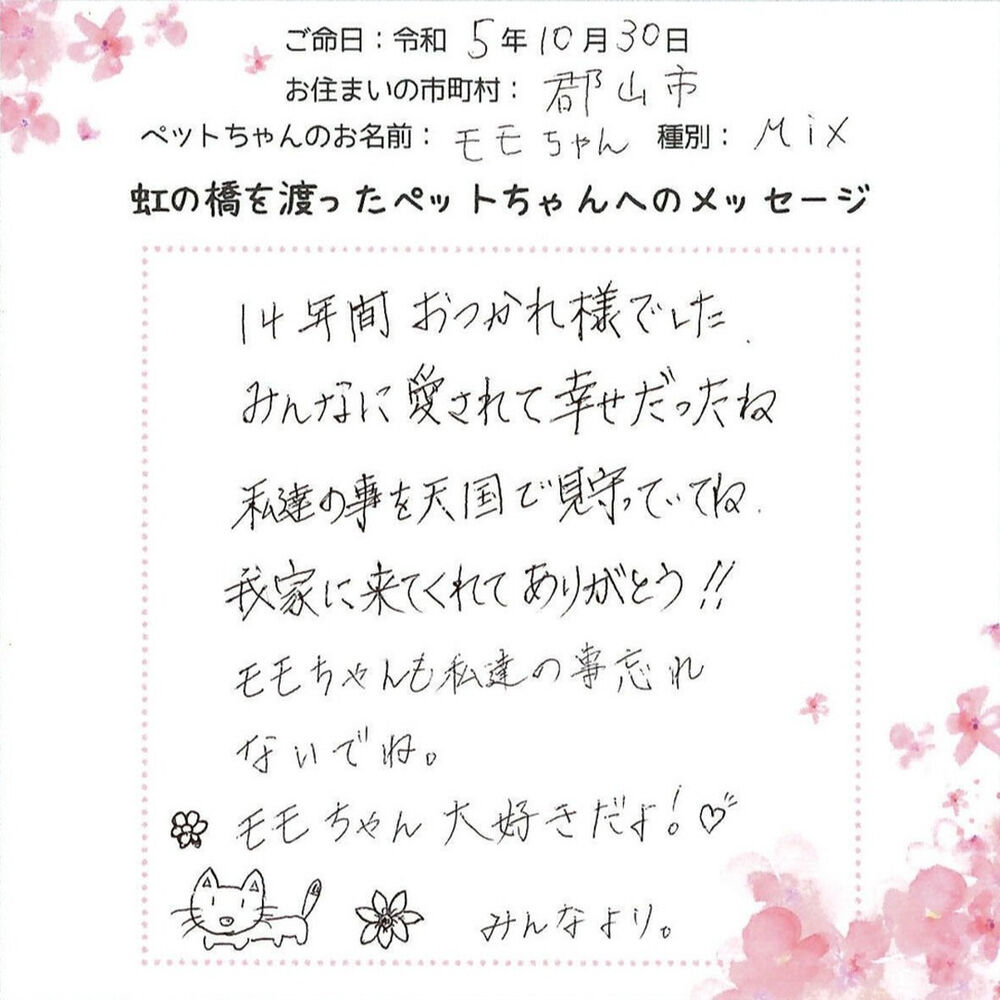 ご命日：令和 5年10月30日
お住まいの市町村： 郡山市
ペットちゃんのお名前： モモちゃん 種別： Mix
虹の橋を渡ったペットちゃんへのメッセージ
14年間おつかれ様でした
みんなに愛されて幸せだったね
私達の事を天国で見守っていてね
我家に来てくれてありがとう!!
モモちゃんも私達の事忘れ
ないでね。
モモちゃん大好きだよ!♡
みんなより。